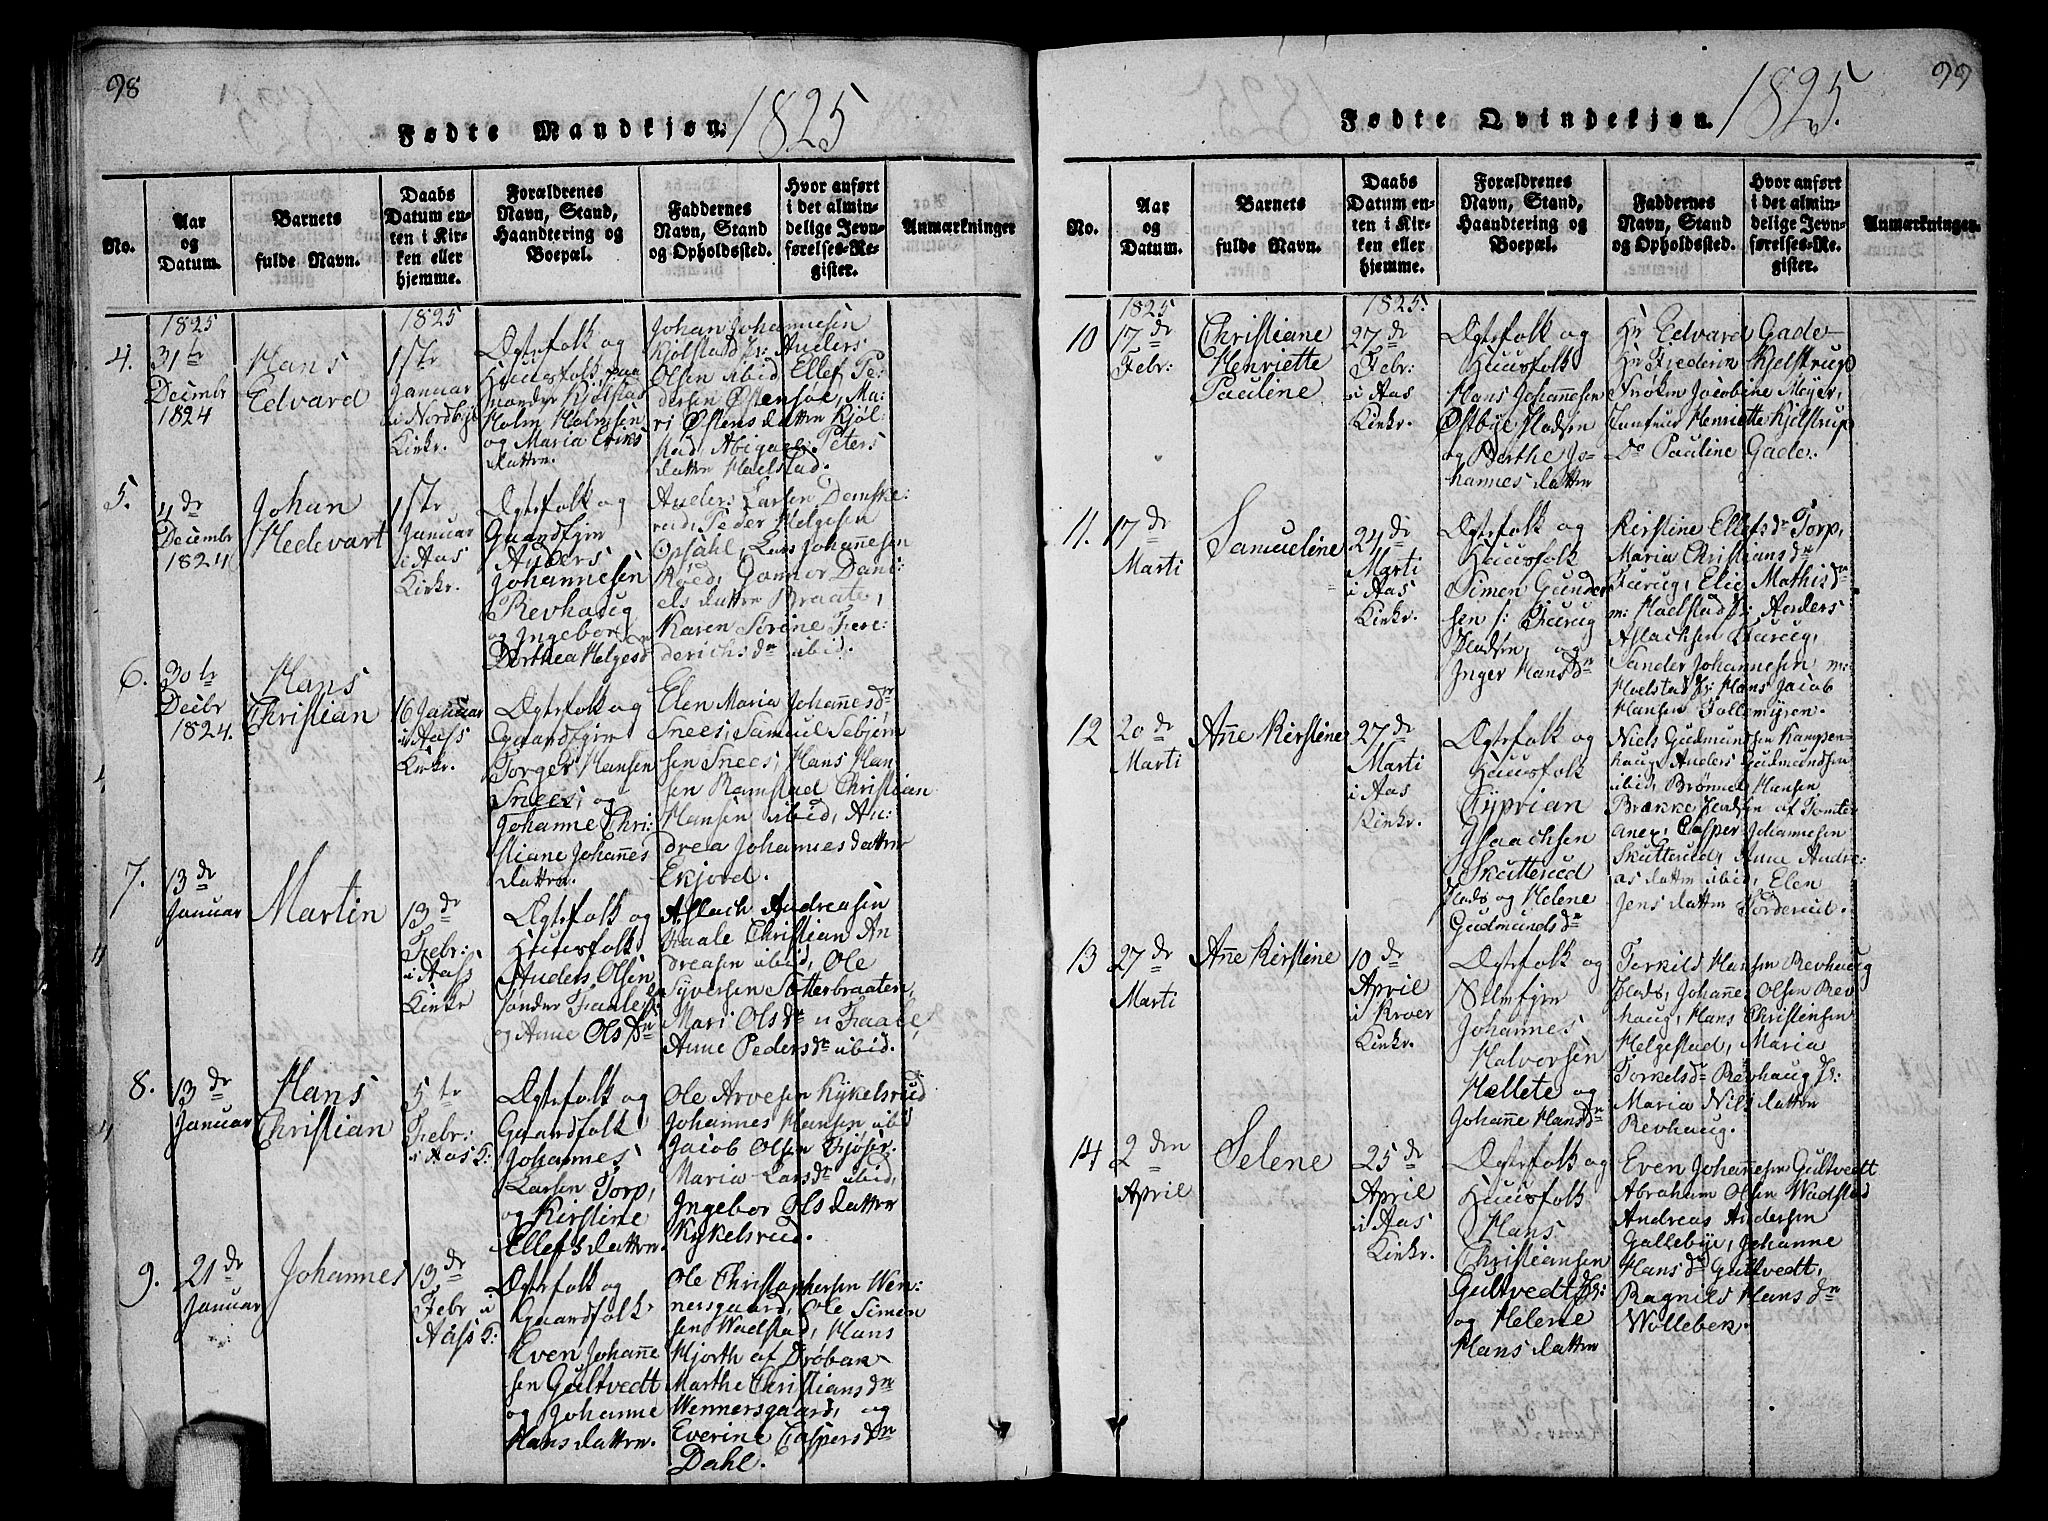 98
Fødte Mandkjøn. 1825
No.
Aar
og
Datum.
Barnets
fulde Navn.
Daabs
Datum en-
ten i Kir-
ken eller
hjemme.
Forældrenes
Navn, Stand,
Haandtering og
Boepæl.
Faddernes
Navn, Stand
og Opholdssted.
Hvor anført
i det almin-
delige Jevn-
førelses-Re-
gister.
Anmærkninger
4.
1825
31te
Decimbr
1824
Hans
Edvard
1825
1ste
Januar
i Nordbye
Kirke.
Ægtefolk og
Huusfolk paa
Holm Holmsen
og Maria Eriks
datter.
Johan Johannesen
Kjølstad Anders
Olsen ibid, Ellef Pe-
dersen Østensøe, Ma-
ri Østensdatter Kjøl-
stad, Abigael Peters
datter Haelstad.
5.
4de
Decimbr
1824
Johan
Hedevart
1ste
Januar
i Aas
Kirke.
Ægtefolk og
Gaardfyr
Anders
Johannesen
Revhaug
og Ingebor
Dorthea Helgesdr
Anders Larsen Demske-
rud, Peder Helgesen
Opsahl, Lars Johannesen
Roed, Gonnor Dani-
elsdatter Braate,
Karen Sirine Fre-
derichsdr ibid.
6.
30te
Decibr
1824.
Hans
Christian
16 Januar
i Aass
Kirke.
Ægtefolk og
Gaardfyr
Torger Hansen
Snees, og
Johanne Chri-
stiane Johannes
datter.
Elen Maria Johannesdr
Snees, Samuel Sebjørn
sen Snees, Hans Han
sen Ramstad Christian
Hansen ibid, An-
drea Johannesdatter
Ekjord.
7.
13de
Januar
Martin
13de
Febr:
i Aass
Kirke
Ægtefolk og
Huusfolk
Anders Olsen
søndre Fraale
og Anne Olsdr
Aslach Andreasen
Fraale Christian An
dreasen ibid, Ole
Syversen Sotterbraaten,
Mari Olsdr i Fraale,
Anne Pedersdr ibid.
8.
13de
Januar
Hans
Christian
5te
Febr:
i Aas K:
Ægtefolk og
Gaardfolk
Johannes
Larsen Torp,
og Kirstine
Ellefsdatter.
Ole Arvesen Kykelsrud
Johannes Hansen ibid
Jacob Olsen Tiøser.
Maria Larsdr ibid,
Ingebor Olsdatter
Kykelsrud.
9.
21de
Januar
Johannes
13de
Febr i
Aass K:
Ægtefolk og
Gaardfolk
Even Johanne
sen Gultvedt
og Johanne
Hansdatter.
Ole Christophersen Wen-
nersgaard, Ole Simon
sen Wadstad, Hans
Hjorth af Drøbak
Marthe Christiansdr
Wennersgaard, og
Everine Caspersdr
Dahl.
99
Fødte Qvindekjøn. 1825.
No.
Aar
og
Datum.
Barnets
fulde Navn.
Daabs
Datum en-
ten i Kir-
ken eller
hjemme.
Forældrenes
Navn, Stand,
Haandtering og
Boepæl.
Faddernes
Navn, Stand
og Opholdssted.
Hvor anført
i det almin-
delige Jevn-
førelses-Re-
gister.
Anmærkninger.
10
1825
17de
Febr:
Christiane
Henriette
Pauline
1825.
27de
Febr:
i Aas
Kirke.
Ægtefolk og
Huusfolk
Hans Johannesen
Østbye Pladsen
og Berthe Jo-
hannesdatter
Hr Edvard Gade
Hr Frederik Kjelstrup
Frøkn Jacobine Meyer,
Jomfrue Henriette Kjelstrup
Do Pauline Gade.
11.
17de
Marti
Samueline
24de
Marti
i Aas
Kirke.
Ægtefolk og
Huusfolk
Simen Gunder
sen s: Furug
Pladsen, og
Inger Hansdr
Kirstine Ellefsdr Torp,
Maria Christiansdr
Furug, Elie Mathisdr
m: Haelstad Anders
Aslachsen Furug,
Sander Johannesen m:
Haelstad Hans Jacob
Hansen Tollemyren.
12
20de
Marti
Ane Kirstine
27de
Marti
i Aas
Kirke.
Ægtefolk og
Huusfolk
Cyprian
Isaachsen
Skutterud
Plads og Helene
Gudmundsdr
Niels Gudmundsen Kampen-
haug, Anders Gudmundsen
ibid, Brønnel Hansen
Brække Pladsen af Tomter
Anex, Casper Johannesen
Skutterud, Anne Andre-
asdatter ibid, Elen
Jensdatter Norderud.
13
27de
Marti
Ane Kirstine
10de
April
i Kroer
Kirke.
Ægtefolk og
Selvefyr
Johannes
Halvorsen
Hællete og
Johanne Hansdr
Torkild Hansen Revhaug
Plads, Johanne Olsen Rev
haug, Hans Christensen
Helgestad, Maria
Torkelsdr Revhaug
Maria Nilsdatter
Revhaug.
14
2den
April
Selene
25de
April
i Aas
Kirke.
Ægtefolk og
Huusfolk
Hans
Christiansen
Gultvedt
og Helene
Hansdatter
Even Johannesen Gultvedt
Abraham Olsen Wadstad
Andreas Andersen
Gallebye, Johanne
Hansdr Gultvedt,
Ragnild Hansdr
Wollebek.